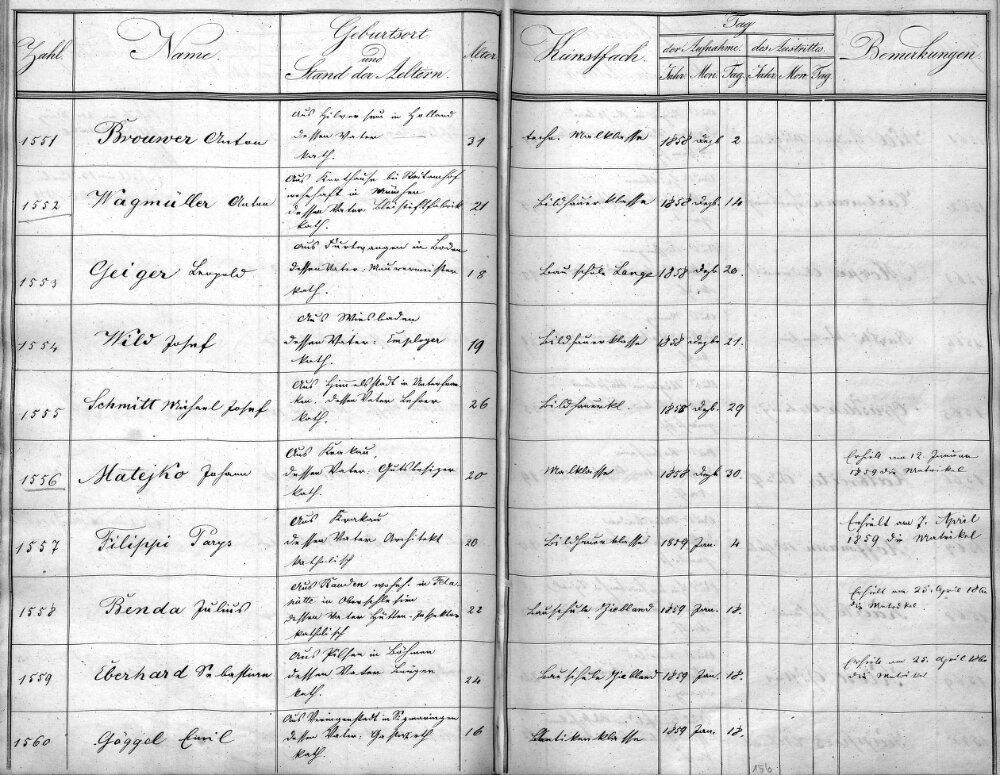 Zahl. Name. Geburtsort und Stand der Aeltern. Alter Kunstfach. Tag der Aufnahme. des Austrittes. Bemerkungen.
Jahr Mon. Tag. Jahr Mon. Tag
Aus Hilversum in Holland
1551 Brouwer Anton dessen Vater 31 techn. Malklasse 1858 Dezb 2
kath.
Aus Karthause bei
1552 Wagmüller Anton in München 21 Bildhauerklasse 1858 Dezb. 14
dessen Vater
kath.
Aus Furtwangen in Baden
1553 Geiger Leopold dessen Vater Maurermeister 18 Bauschule Lange 1858 Dezb 20.
kath.
Aus Wiesbaden
1554 Wild Josef dessen Vater: 19 Bildhauerklasse 1858 Dezbr 21.
kath.
Aus Himmelstadt in Unterfran
1555 Schmitt Michael Josef ken. dessen Vater Lehrer 26 Bildhauerkl. 1858 Dezb. 29
kath.
Aus Krakau,
1556 Matejko Johann dessen Vater: Gutsbesitzer 20 Malklasse 1858 Dezb 30. Erhielt am 12. Januar
kath. 1859 die Matrikel
Aus Krakau
1557 Filippi Parys dessen Vater Architekt 20 Bildhauerklasse 1859 Jan. 4 Erhielt am 7. April
katholisch 1859 die Matrikel
Aus wohnh. in
in Oberschlesien
1558 Benda Julius dessen Vater Hütten-Inspektor 22 Bauschule Ziebland 1859 Jan. 18. Erhielt am 25. April 1860
katholisch die Matrikel
Aus Pilsen in Böhmen
1559 Eberhard Sebastian dessen Vater 24 Bauschule Ziebland 1859 Jan. 18. Erhielt am 25. April 1860
kath. die Matrikel
Aus Veringenstadt in Sigmaringen
1560 Göggel Emil dessen Vater: Gastwirth 16 Antikenklasse 1859 Jan. 18.
kath.
156